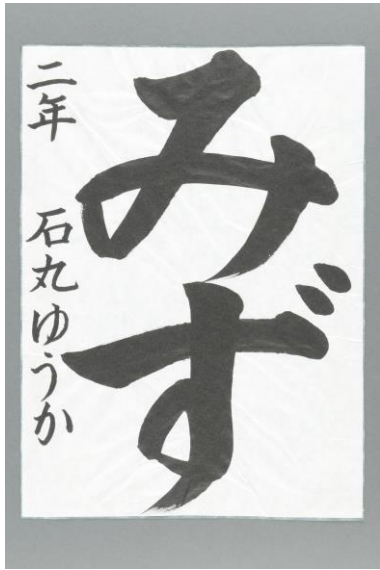 みず
二年 石丸ゆうか